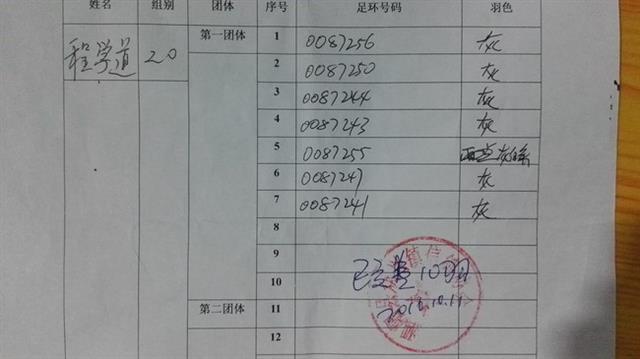 姓名 组别 团体 序号 足环号码 羽色
程学道 20 第一团体 1 0087256 灰
2 0087250 灰
3 0087244 灰
4 0087243 灰
5 0087255 灰
6 0087247 灰
7 0087241 灰
8
9
10
10羽
第二团体 11
10.11
12